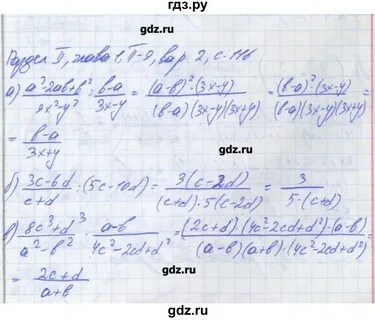 гдз.ру
Раздел II, глава 1, П-9, вар. 2, с. 116
а) (a²-2ab+b²)/(9x²-y²) : (b-a)/(3x-y) = ((a-b)²·(3x-y))/((b-a)(3x-y)(3x+y)) = ((b-a)²(3x-y))/((b-a)(3x-y)(3x+y)) =
= (b-a)/(3x+y)
б) (3c-6d)/(c+d) : (5c-10d) = (3(c-2d))/((c+d)·5(c-2d)) = 3/(5·(c+d))
в) (8c³+d³)/(a²-b²) · (a-b)/(4c²-2cd+d²) = ((2c+d)·(4c²-2cd+d²)·(a-b))/((a-b)(a+b)·(4c²-2cd+d²)) =
= (2c+d)/(a+b)
гдз.ру